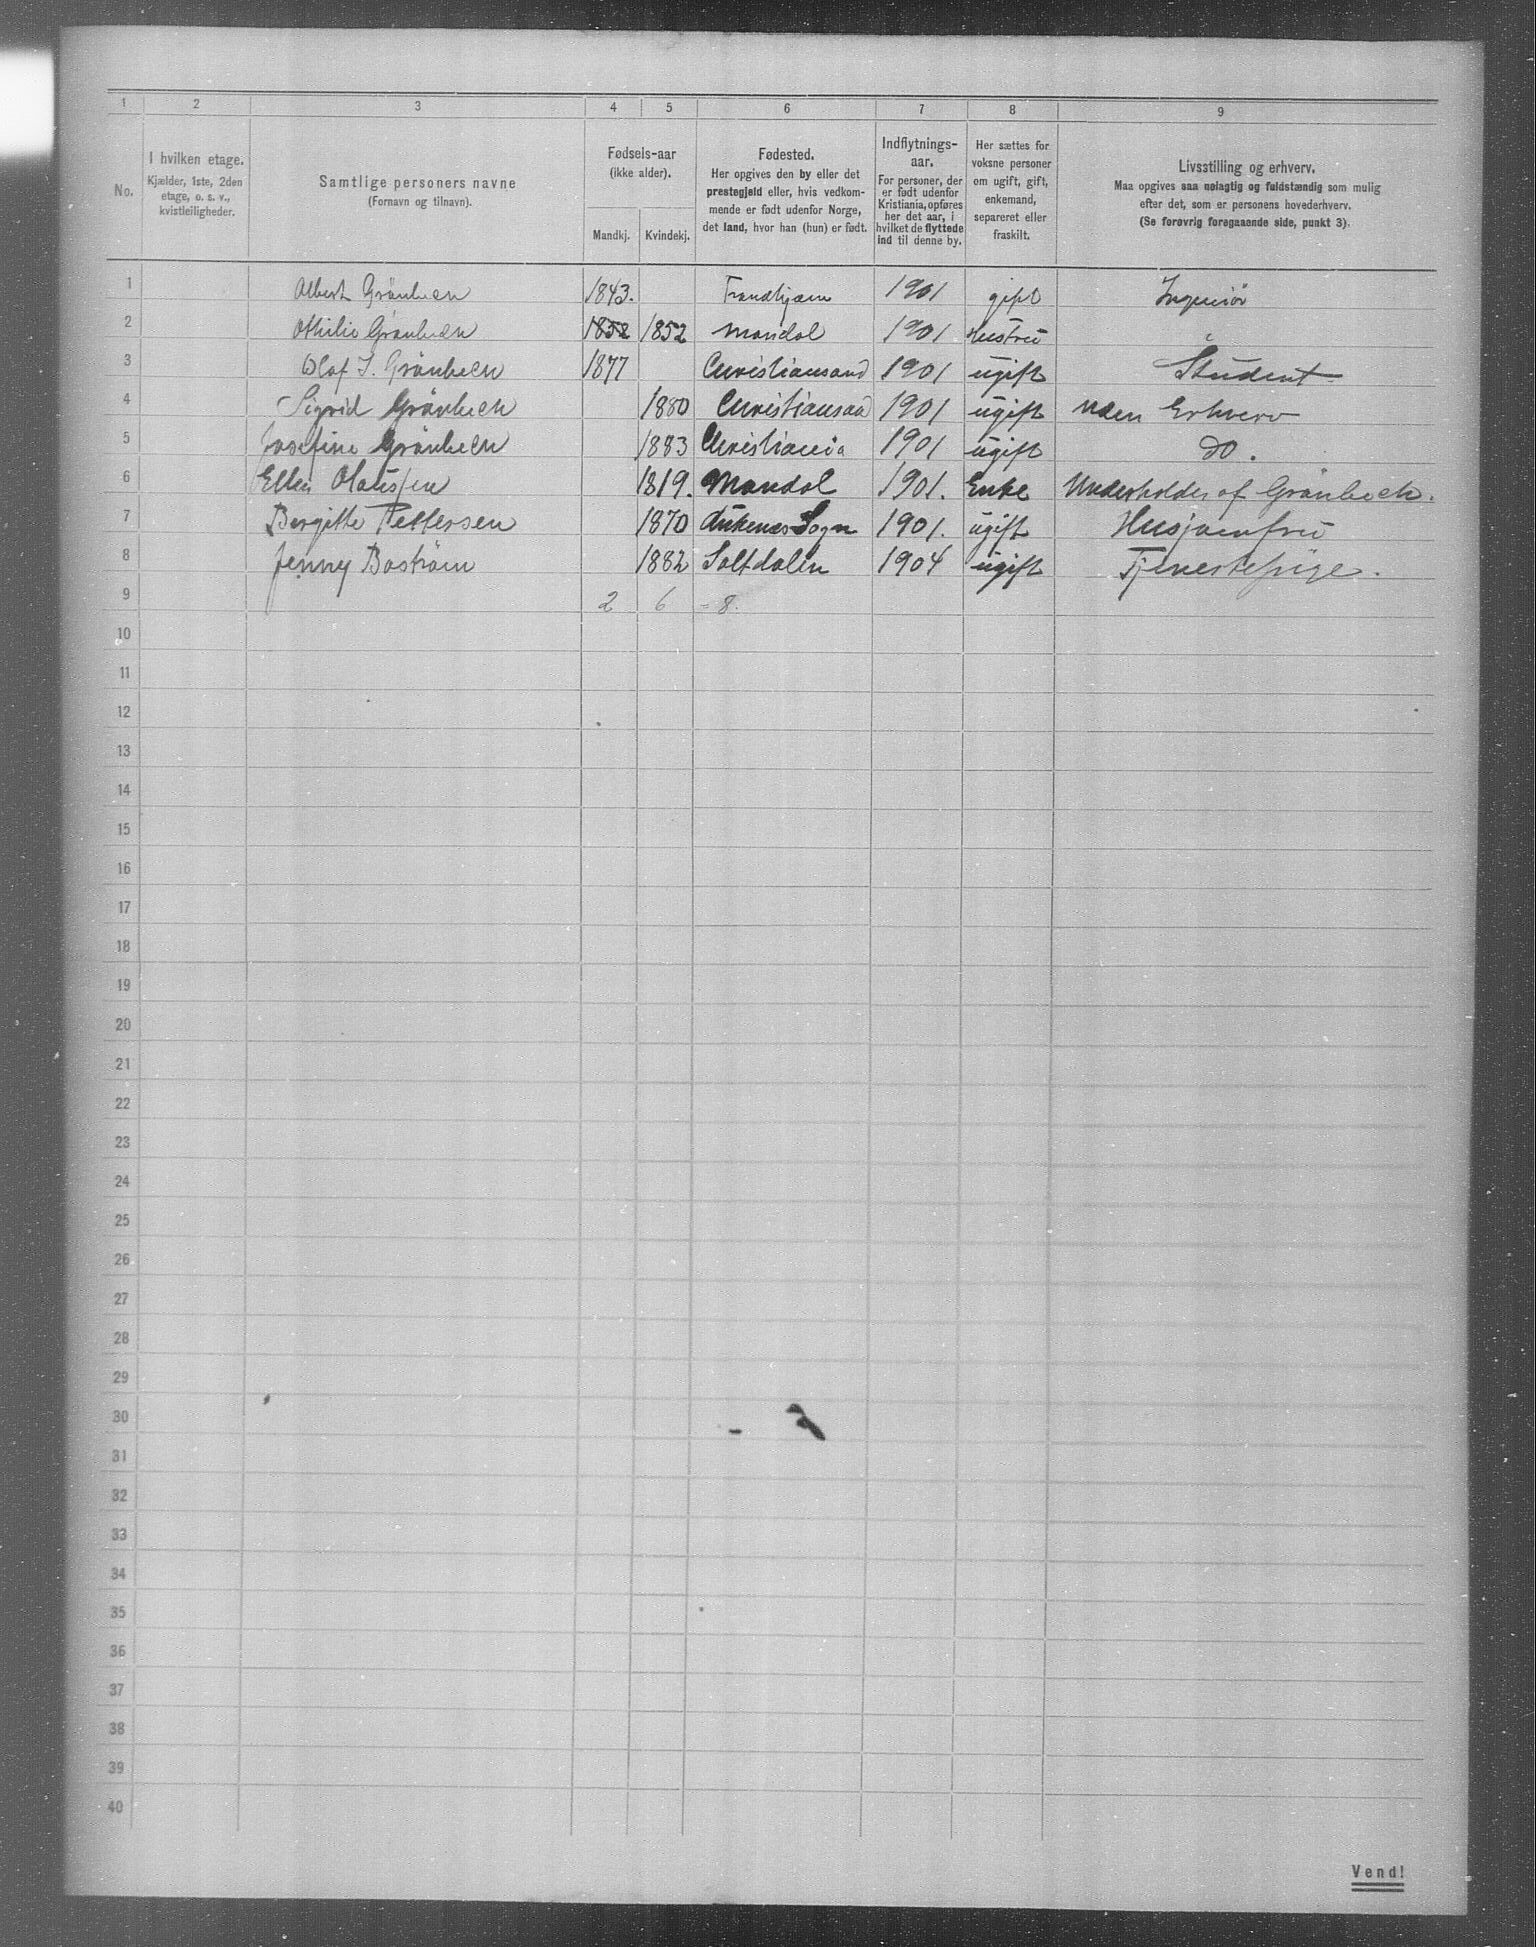 1 2 3 4 5 6 7 8 9
No.
I hvilken etage.
Kjælder, 1ste, 2den
etage, o. s. v.,
kvistleiligheder.
Samtlige personers navne
(Fornavn og tilnavn).
Fødsels-aar
(ikke alder).
Mandkj. Kvindekj.
Fødested.
Her opgives den by eller det
prestegjeld eller, hvis vedkom-
mende er født udenfor Norge,
det land, hvor han (hun) er født.
Indflytnings-
aar.
For personer, der
er født udenfor
Kristiania, opføres
her det aar, i
hvilket de flyttede
ind til denne by.
Her sættes for
voksne personer
om ugift, gift,
enkemand,
separeret eller
fraskilt.
Livsstilling og erhverv.
Maa opgives saa nøiagtig og fuldstændig som mulig
efter det, som er personens hovederhverv.
(Se forøvrig foregaaende side, punkt 3).
1 Albert Grönbech 1843. Trondhjem 1901 gift Ingeniör
2 Othilie Grönbech 1852 1852 Mandal 1901 Hustru
3 Olaf J. Grönbech 1877 Christiansand 1901 ugift Student
4 Sigrid Grönbech 1880 Christiansand 1901 ugift uden Erhverv
5 Josefine Grönbech 1883 Christiania 1901 ugift do.
6 Ellen Olaussen 1819. Mandal 1901. Enke Underholdes af Grönbech.
7 Bergitte Pettersen 1870 Sogn 1901. ugift Husjomfru
8 Jenny Boström 1882 Saltdalen 1904 ugift Tjenestepige.
9 2 6 = 8.
10
11
12
13
14
15
16
17
18
19
20
21
22
23
24
25
26
27
28
29
30
31
32
33
34
35
36
37
38
39
40
Vend!